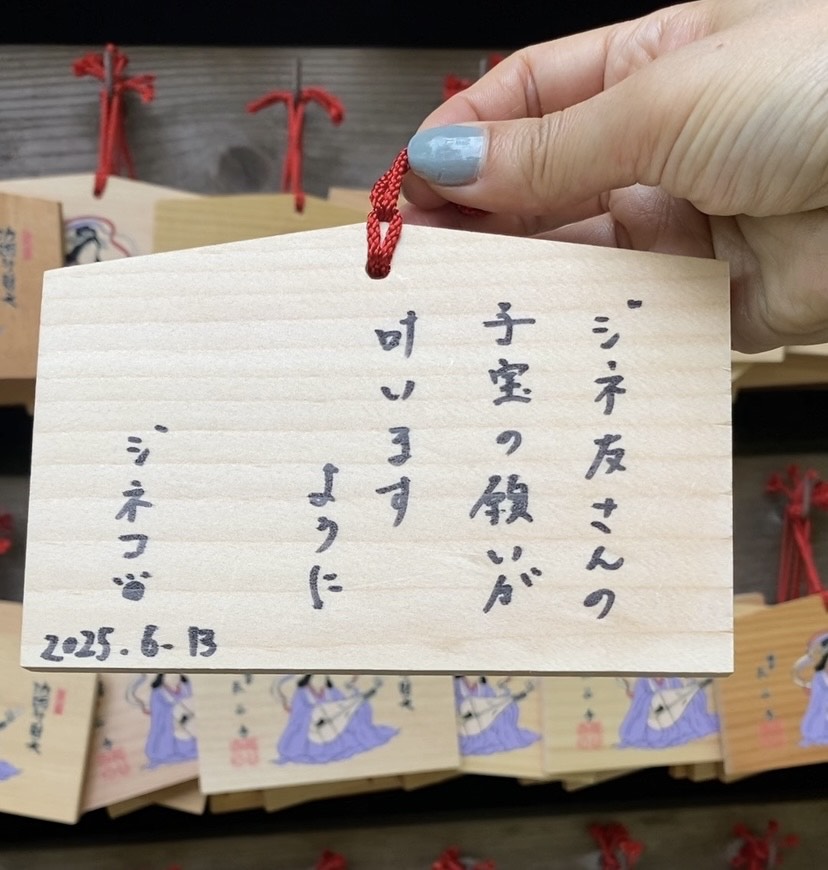 ジネ友さんの
子宝の願いが
叶います
ように
ジネコ
2025.6.13